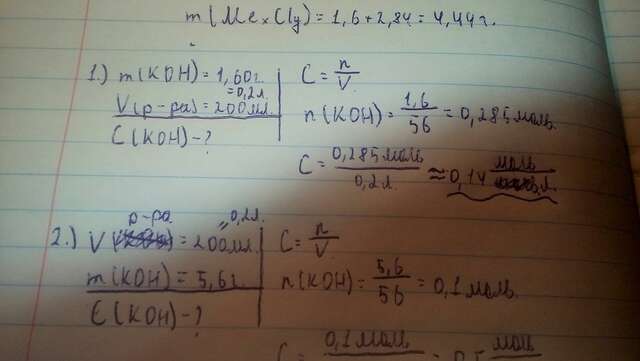 m(MexCly) = 1,6 + 2,84 = 4,44 г.
1.) m(KOH) = 1,60 г.
V(р-ра) = 200 мл. = 0,2 л.
C(KOH) - ?
C = n/V
n(KOH) = 1,6/56 = 0,285 моль.
C = 0,285 моль/0,2 л. ≈ 0,14 моль/л.
2.) V(р-ра) = 200 мл. = 0,2 л.
m(KOH) = 5,6 г.
C(KOH) - ?
C = n/V
n(KOH) = 5,6/56 = 0,1 моль.
C = 0,1 моль моль